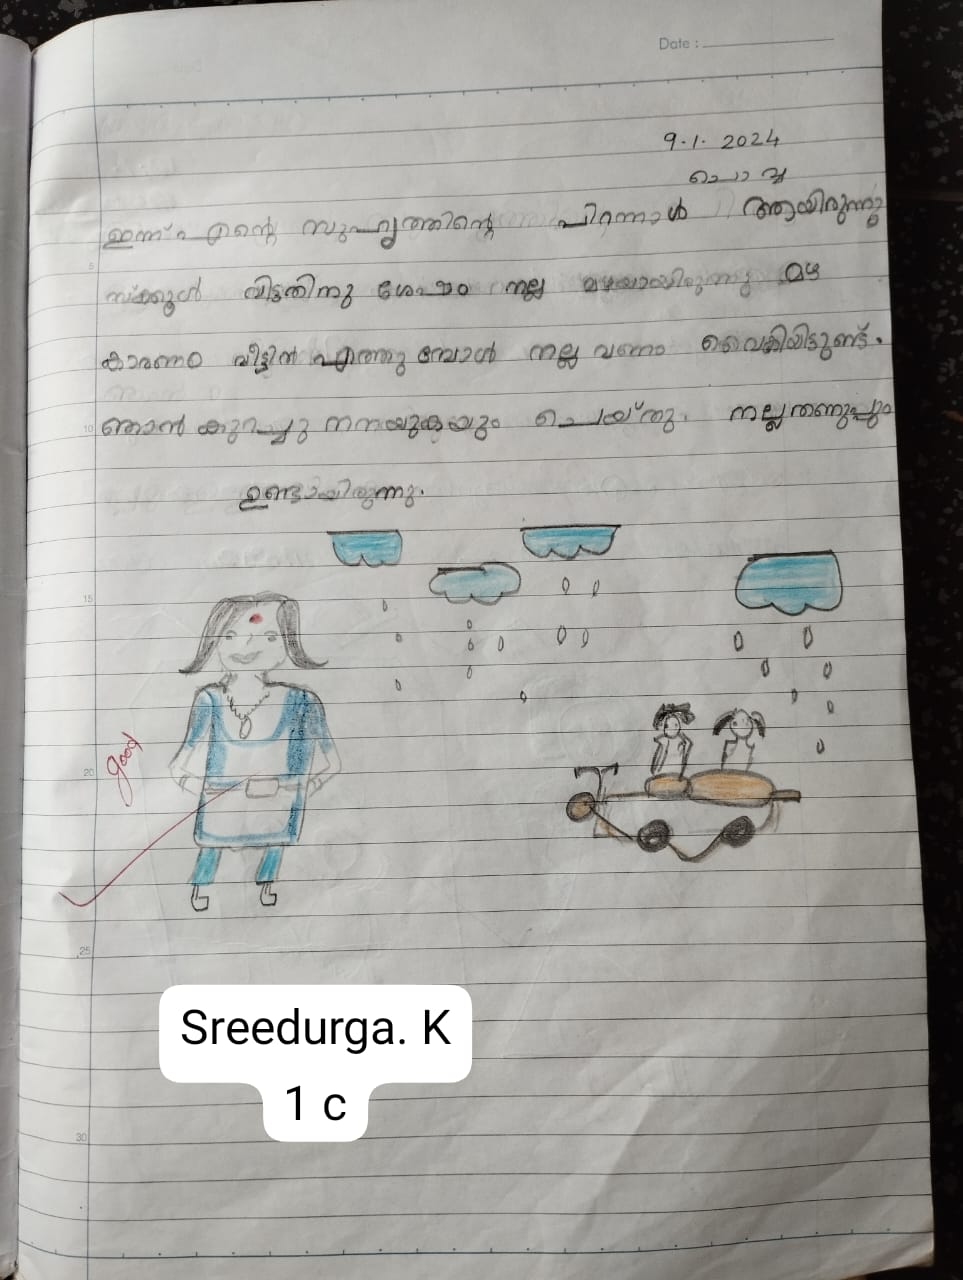 Date :
9.1. 2024
ചൊവ്വ
ഇന്ന് എന്റെ സുഹൃത്തിന്റെ പിറന്നാൾ ആയിരുന്നു
സ്ക്കൂൾ വിട്ടതിനു ശേഷം നല്ല മഴയായിരുന്നു മഴ
കാരണം വീട്ടിൽ എത്തുമ്പോൾ നല്ല വണം വൈകിയിട്ടുണ്ട്.
ഞാൻ കുറച്ചു നനയുകയും ചെയ്തു. നല്ല തണുപ്പും
ഉണ്ടായിരുന്നു.
good
5
10
15
20
25
30
Sreedurga. K
1 c